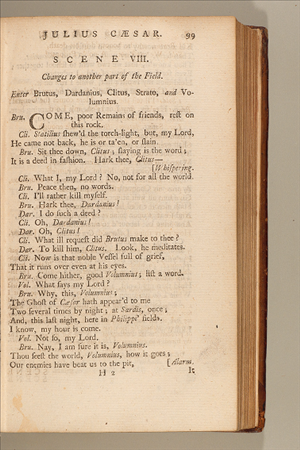 JULIUS CÆSAR. 99
SCENE VIII.
Changes to another part of the Field.
Enter Brutus, Dardanius, Clitus, Strato, and Vo-
lumnius.
Bru. COME, poor Remains of friends, reſt on
this rock.
Cli. Statilius ſhew'd the torch-light, but, my Lord,
He came not back, he is or ta'en, or ſlain.
Bru. Sit thee down, Clitus; ſlaying is the word;
It is a deed in faſhion. Hark thee, Clitus—
[Whiſpering.
Cli. What I, my Lord? No, not for all the world.
Bru. Peace then, no words.
Cli. I'll rather kill myſelf.
Bru. Hark thee, Dardanius!
Dar. I do ſuch a deed?
Cli. Oh, Dardanius!
Dar. Oh, Clitus!
Cli. What ill requeſt did Brutus make to thee?
Dar. To kill him, Clitus. Look, he meditates.
Cli. Now is that noble Veſſel full of grief,
That it runs over even at his eyes.
Bru. Come hither, good Volumnius; liſt a word.
Vol. What ſays my Lord?
Bru. Why, this, Volumnius;
The Ghoſt of Cæſar hath appear'd to me
Two ſeveral times by night; at Sardis, once;
And, this laſt night, here in Philippi' fields.
I know, my hour is come.
Vol. Not ſo, my Lord.
Bru. Nay, I am ſure it is, Volumnius.
Thou ſeeſt the world, Volumnius, how it goes;
Our enemies have beat us to the pit, [Alarm.
H 2 It